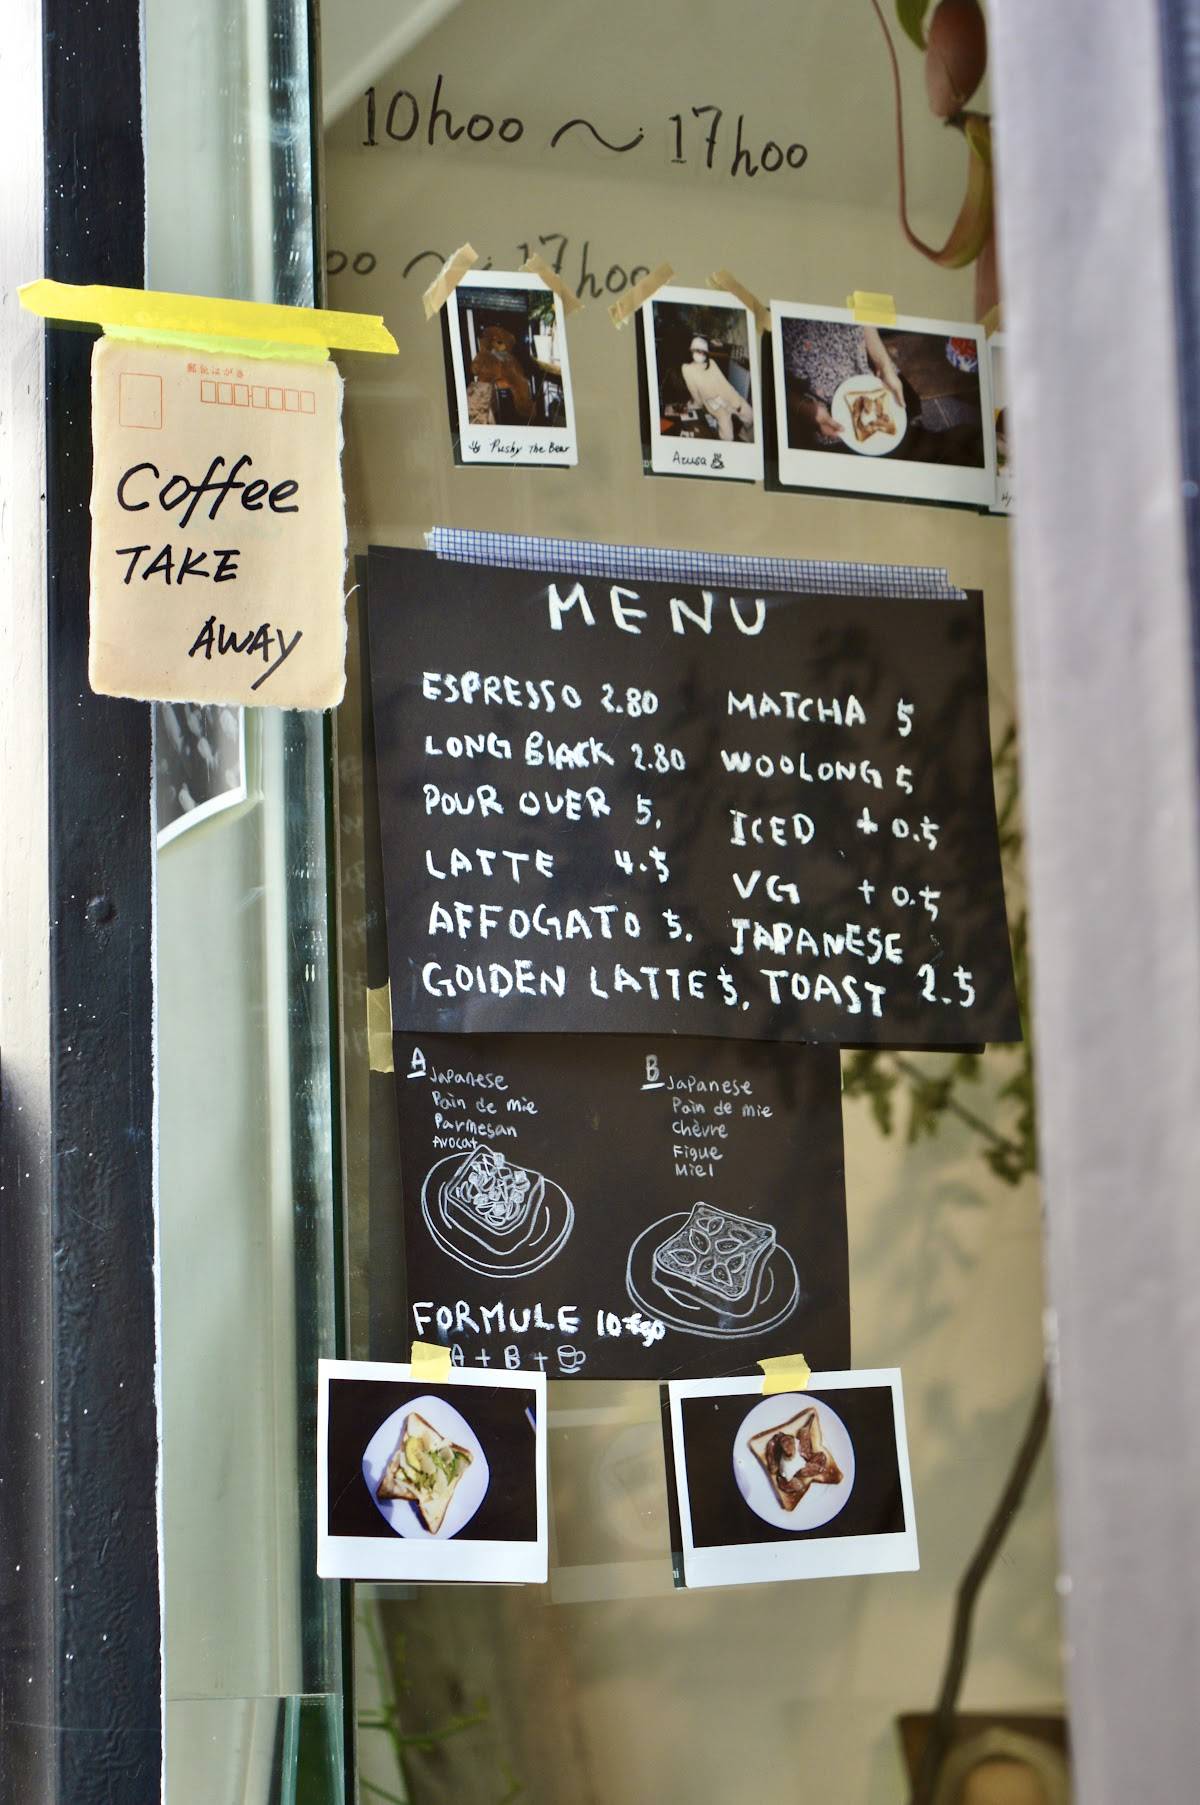 10h00 ~ 17h00
郵便はがき
Coffee
TAKE
AWAY
Pushy The Bear
Azusa
MENU
ESPRESSO 2.80
LONG BLACK 2.80
POUR OVER 5.
LATTE 4.5
AFFOGATO 5.
GOLDEN LATTE 5.
MATCHA 5
WOOLONG 5
ICED + 0.5
VG + 0.5
JAPANESE
TOAST 2.5
A Japanese
Pain de mie
Parmesan
Avocat
B Japanese
Pain de mie
chèvre
Figue
Miel
FORMULE 10
A + B +